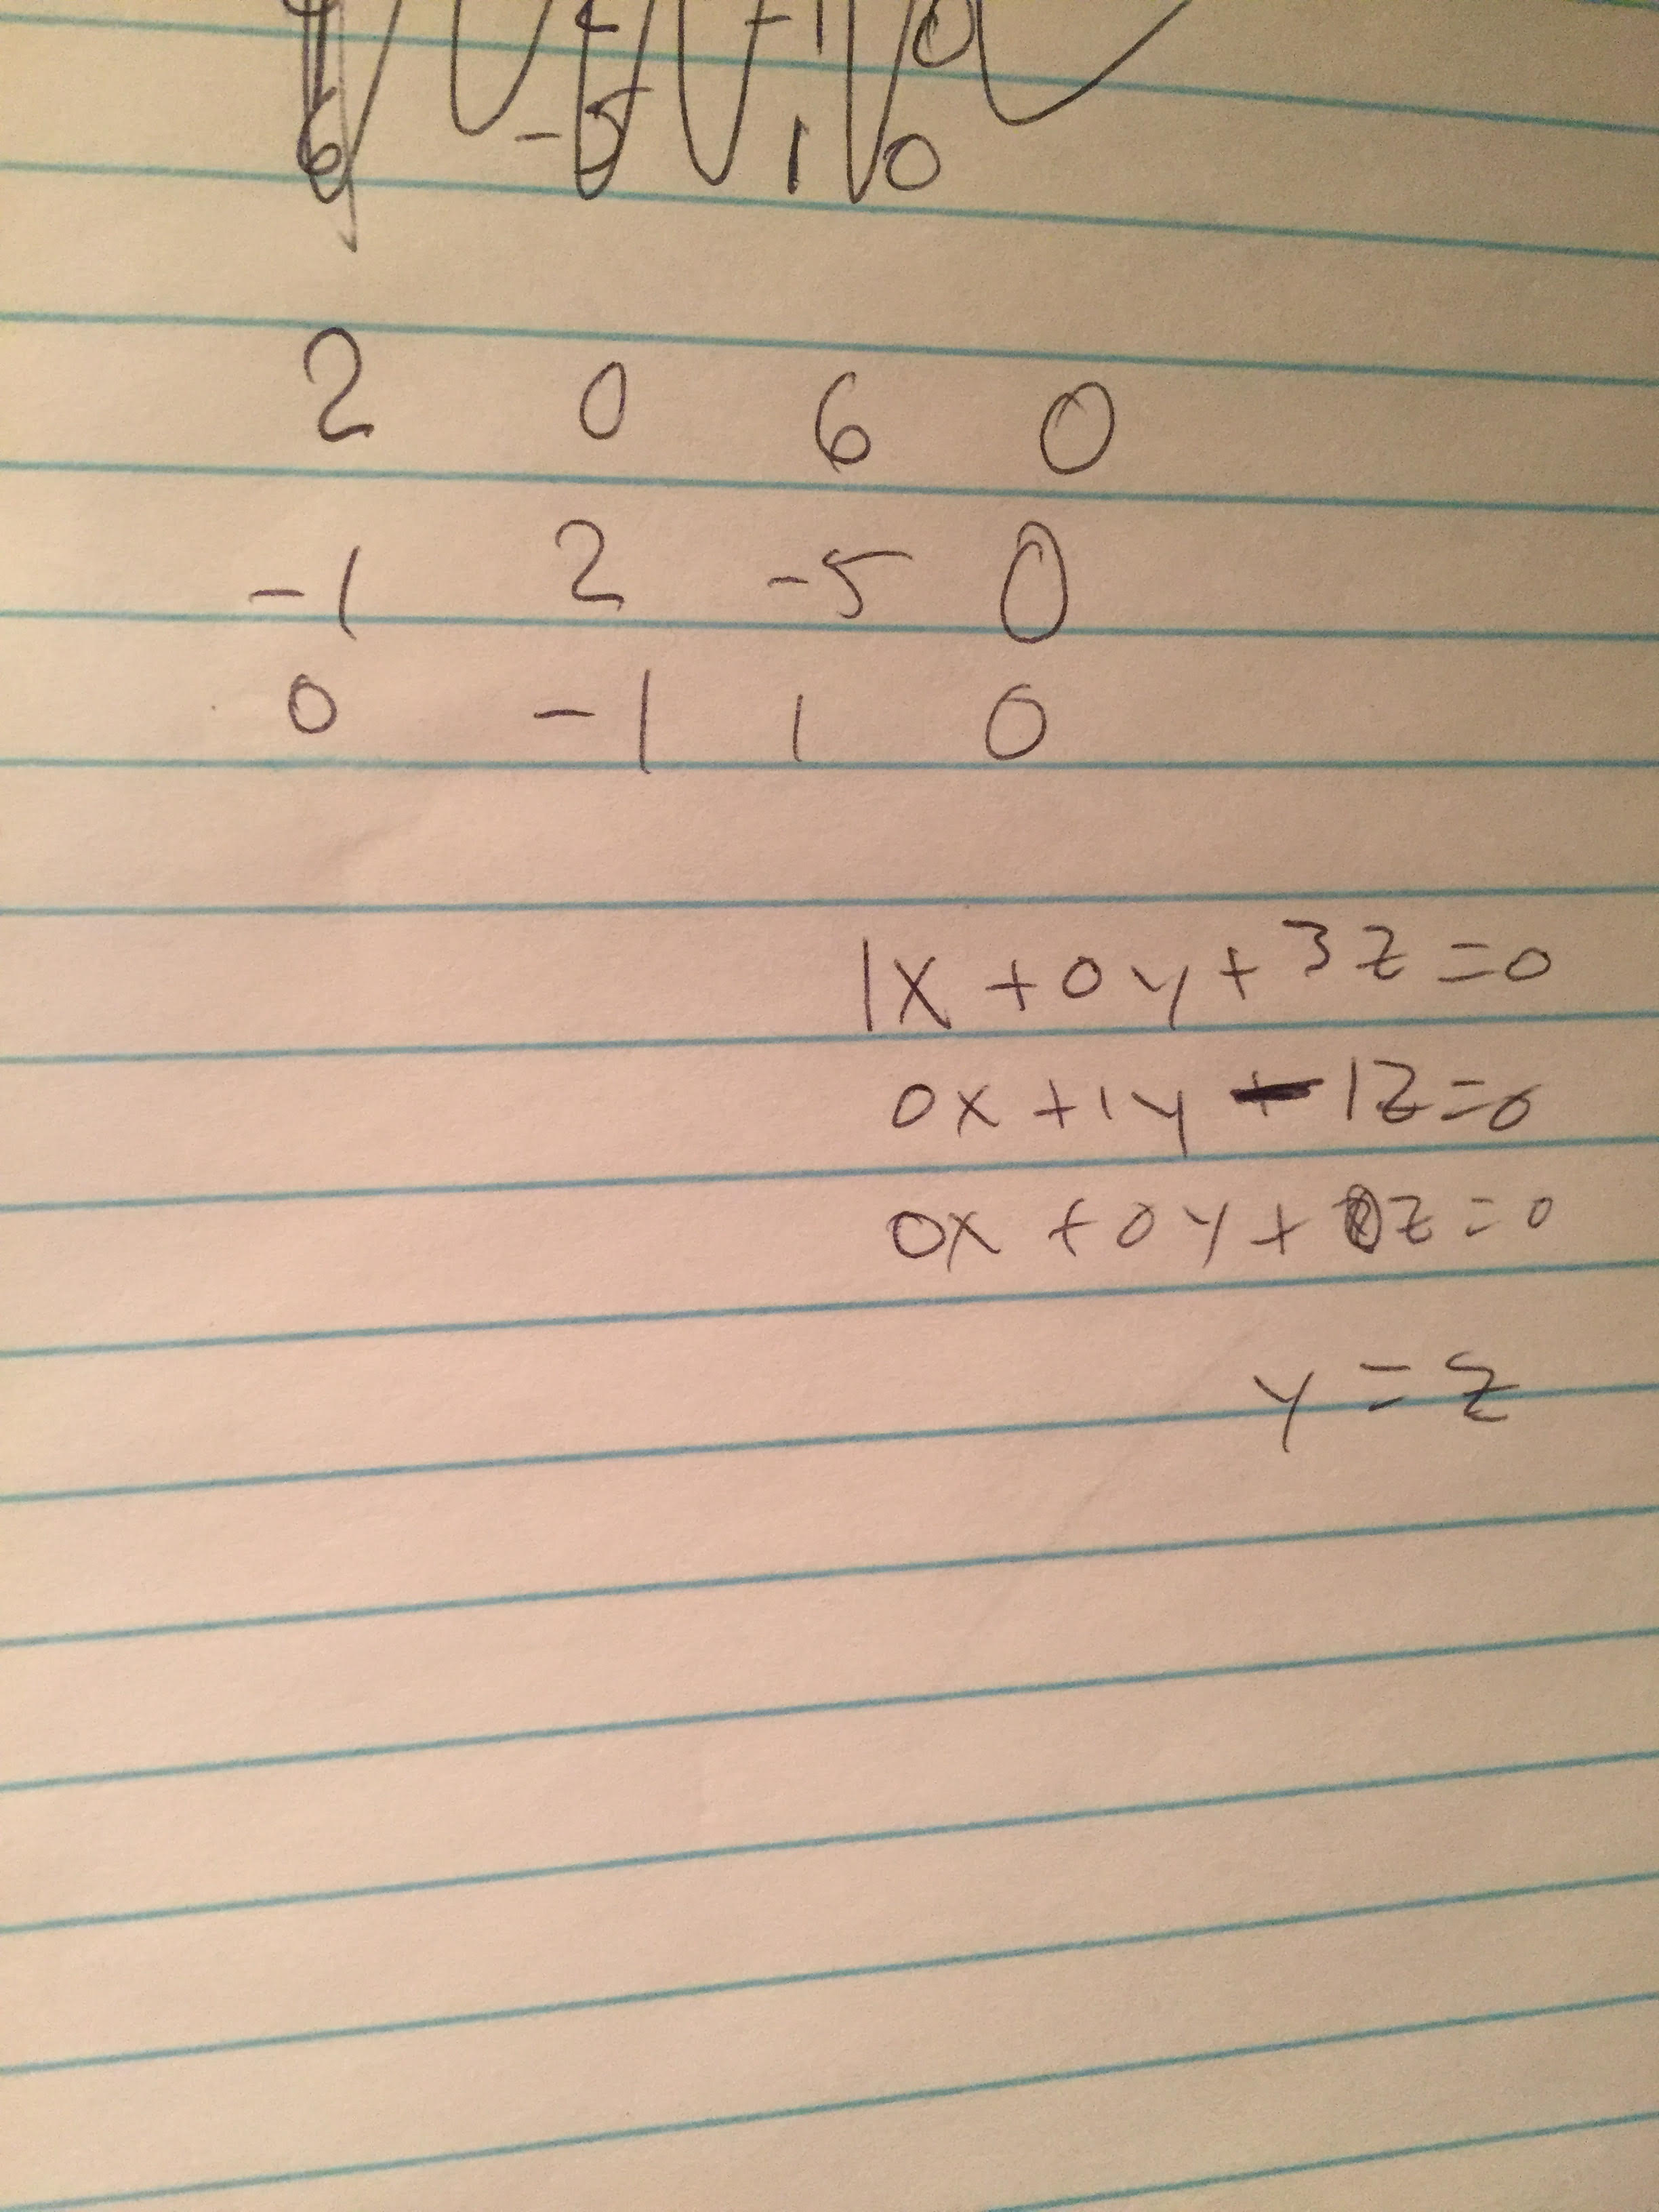 6 -5 1 0
2 0 6 0
-1 2 -5 0
0 -1 1 0
1x + 0y + 3z = 0
0x + 1y - 1z = 0
0x + 0y + 0z = 0
y = z